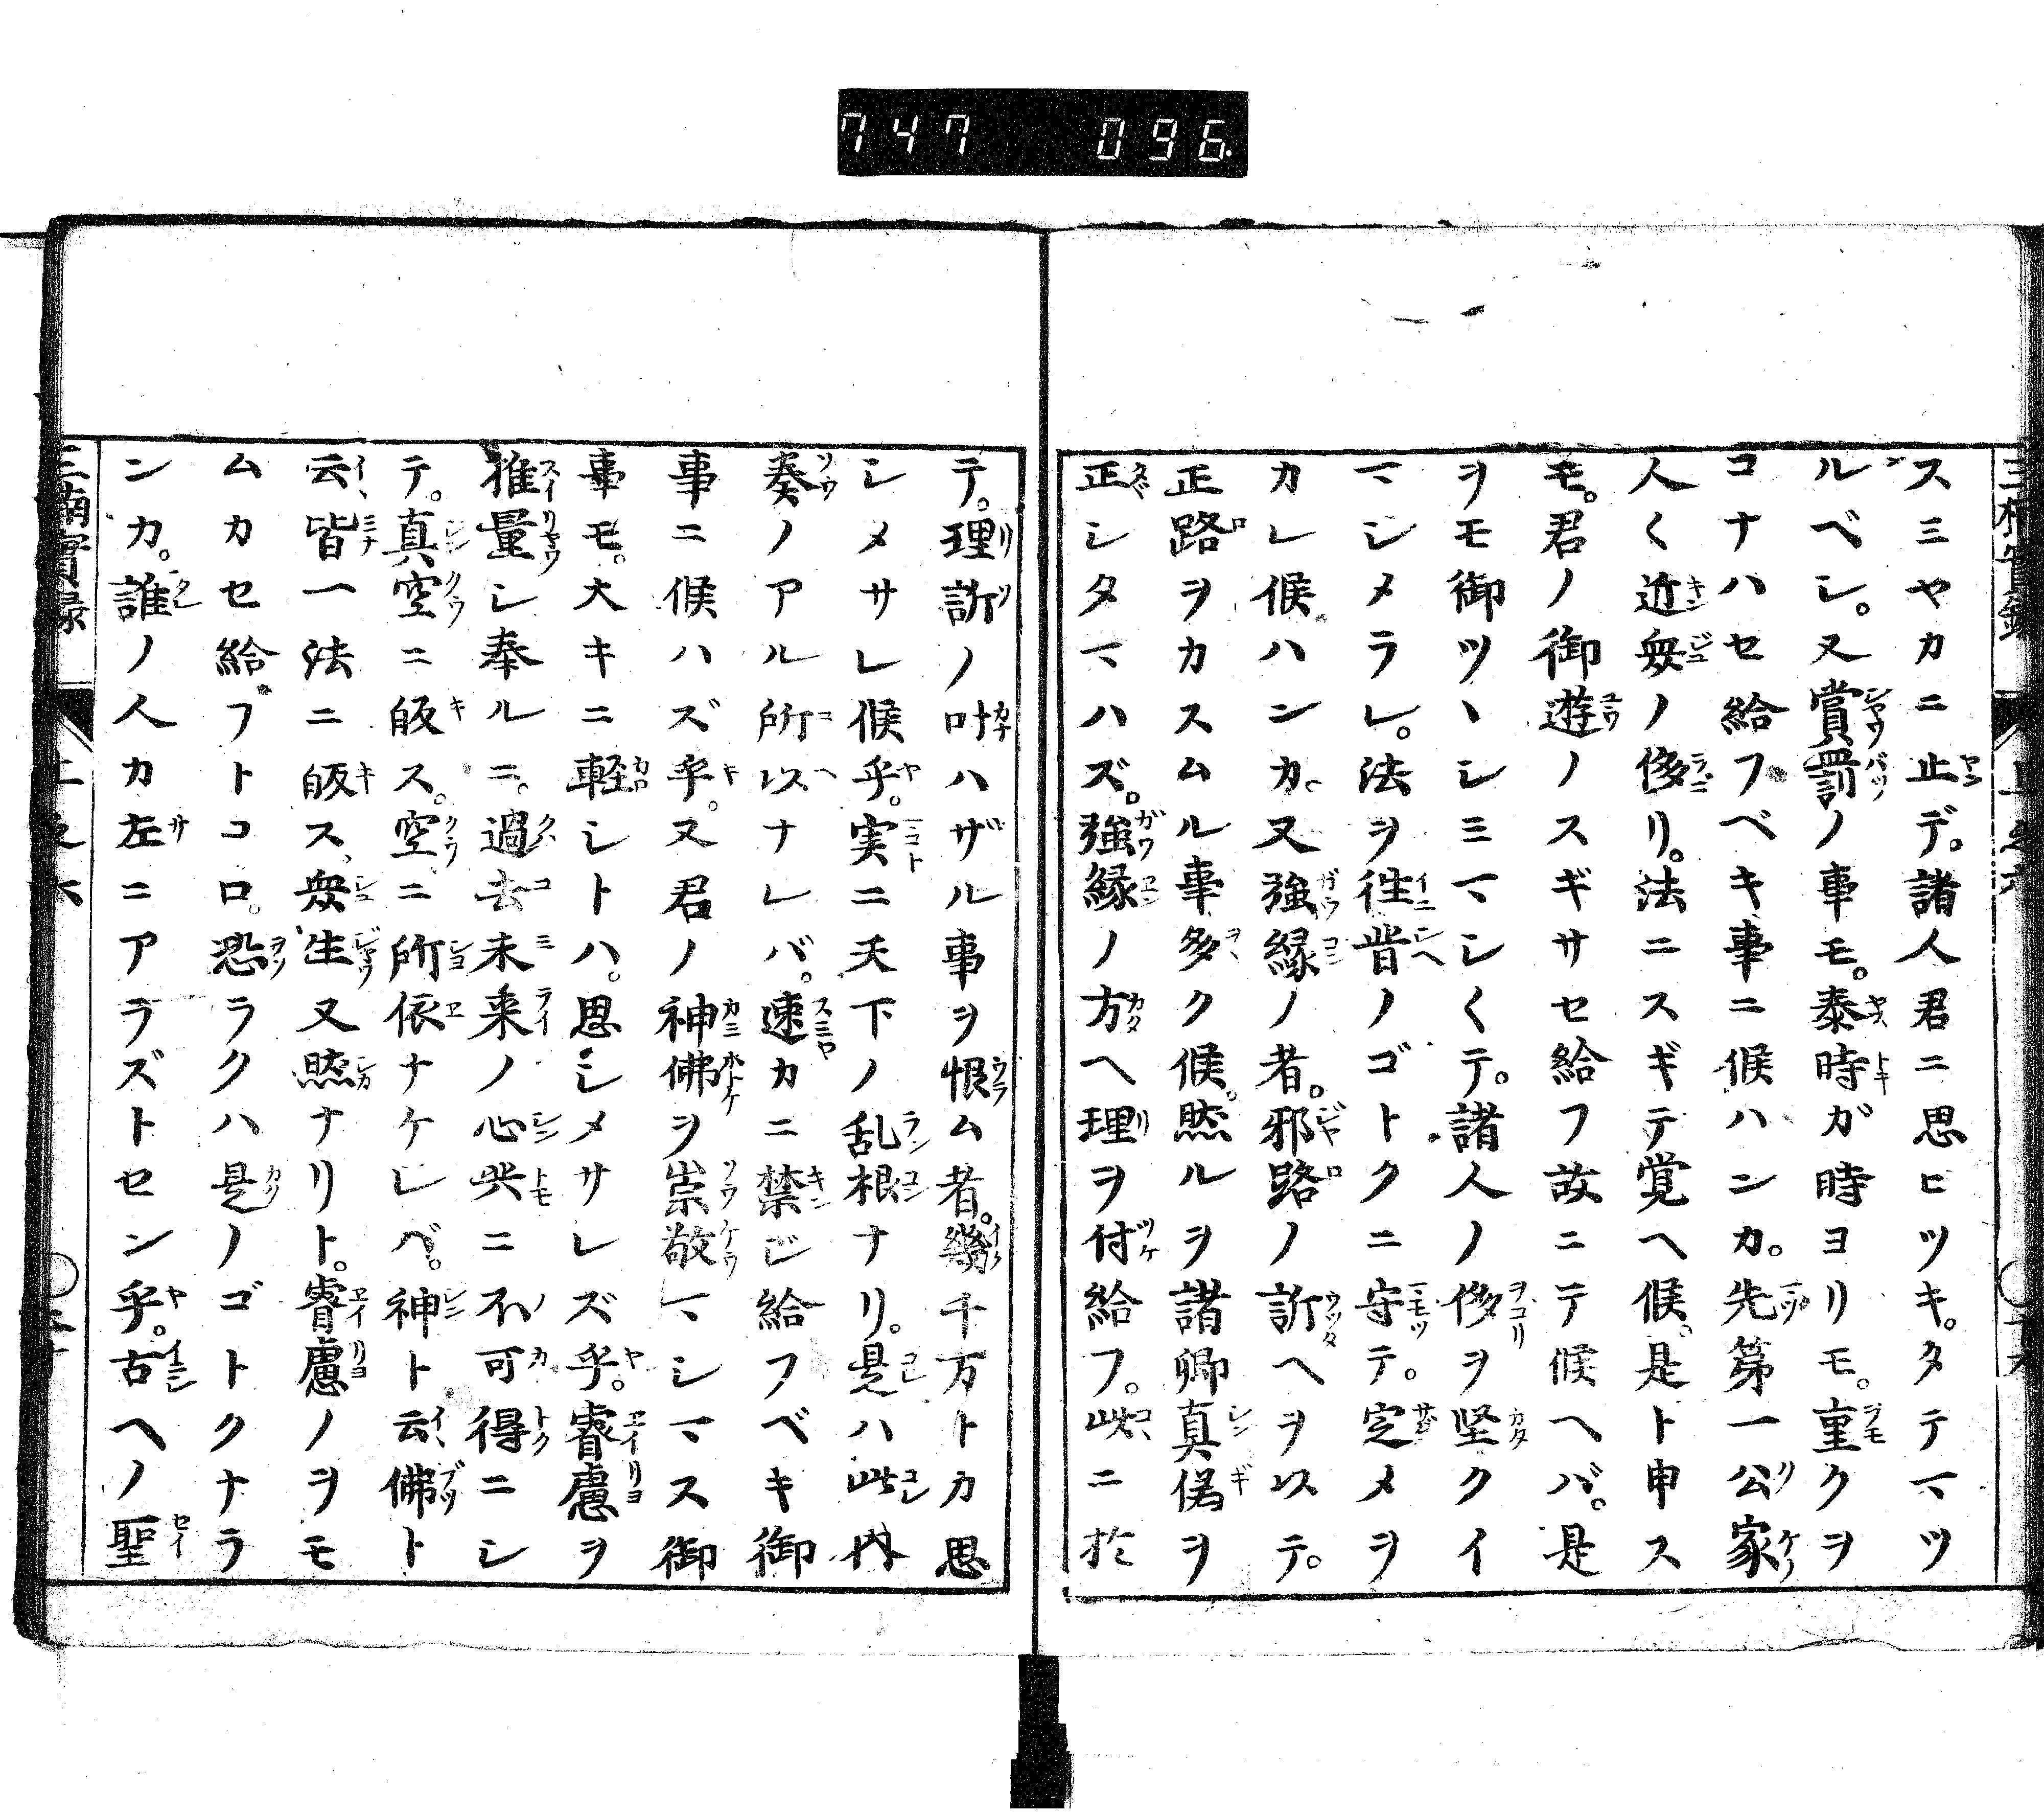 747 096
スミヤカニ止デ。諸人君ニ思ヒツキ。タテマツ
ルベシ。又賞罰ノ事モ。泰時ガ時ヨリモ。重クヲ
コナハセ給フベキ事ニ候ハンカ。先第一公家
人〱近衆ノ侈リ。法ニスギテ覚ヘ候。是ト申ス
モ。君ノ御遊ノスギサセ給フ故ニテ候ヘバ。是
ヲモ御ツヽシミマシ〱テ。諸人ノ侈ヲ堅クイ
マシメラレ。法ヲ徃昔ノゴトクニ守テ。定メヲ
カレ候ハンカ。又強縁ノ者。邪路ノ訴ヘヲ以テ。
正路ヲカスムル事多ク候。然ルヲ諸卿真偽ヲ
正シタマハズ。強縁ノ方ヘ理ヲ付給フ。此ニ於
テ。理訴ノ叶ハザル事ヲ恨ム者。幾千万トカ思
シメサレ候乎。実ニ天下ノ乱根ナリ。是ハ此内
奏ノアル所以ナレバ。速カニ禁ジ給フベキ御
事ニ候ハズ乎。又君ノ神佛ヲ崇敬マシマス御
事モ。大キニ軽シトハ。思シメサレズ乎。睿慮ヲ
推量シ奉ルニ。過去未来ノ心共ニ不可得ニシ
テ。真空ニ皈ス。空ニ所依ナケレバ。神ト云佛ト
云皆一法ニ皈ス、衆生又然ナリト。睿慮ノヲモ
ムカセ給フトコロ。恐ラクハ是ノゴトクナラ
ンカ。誰ノ人カ左ニアラズトセン乎。古ヘノ聖